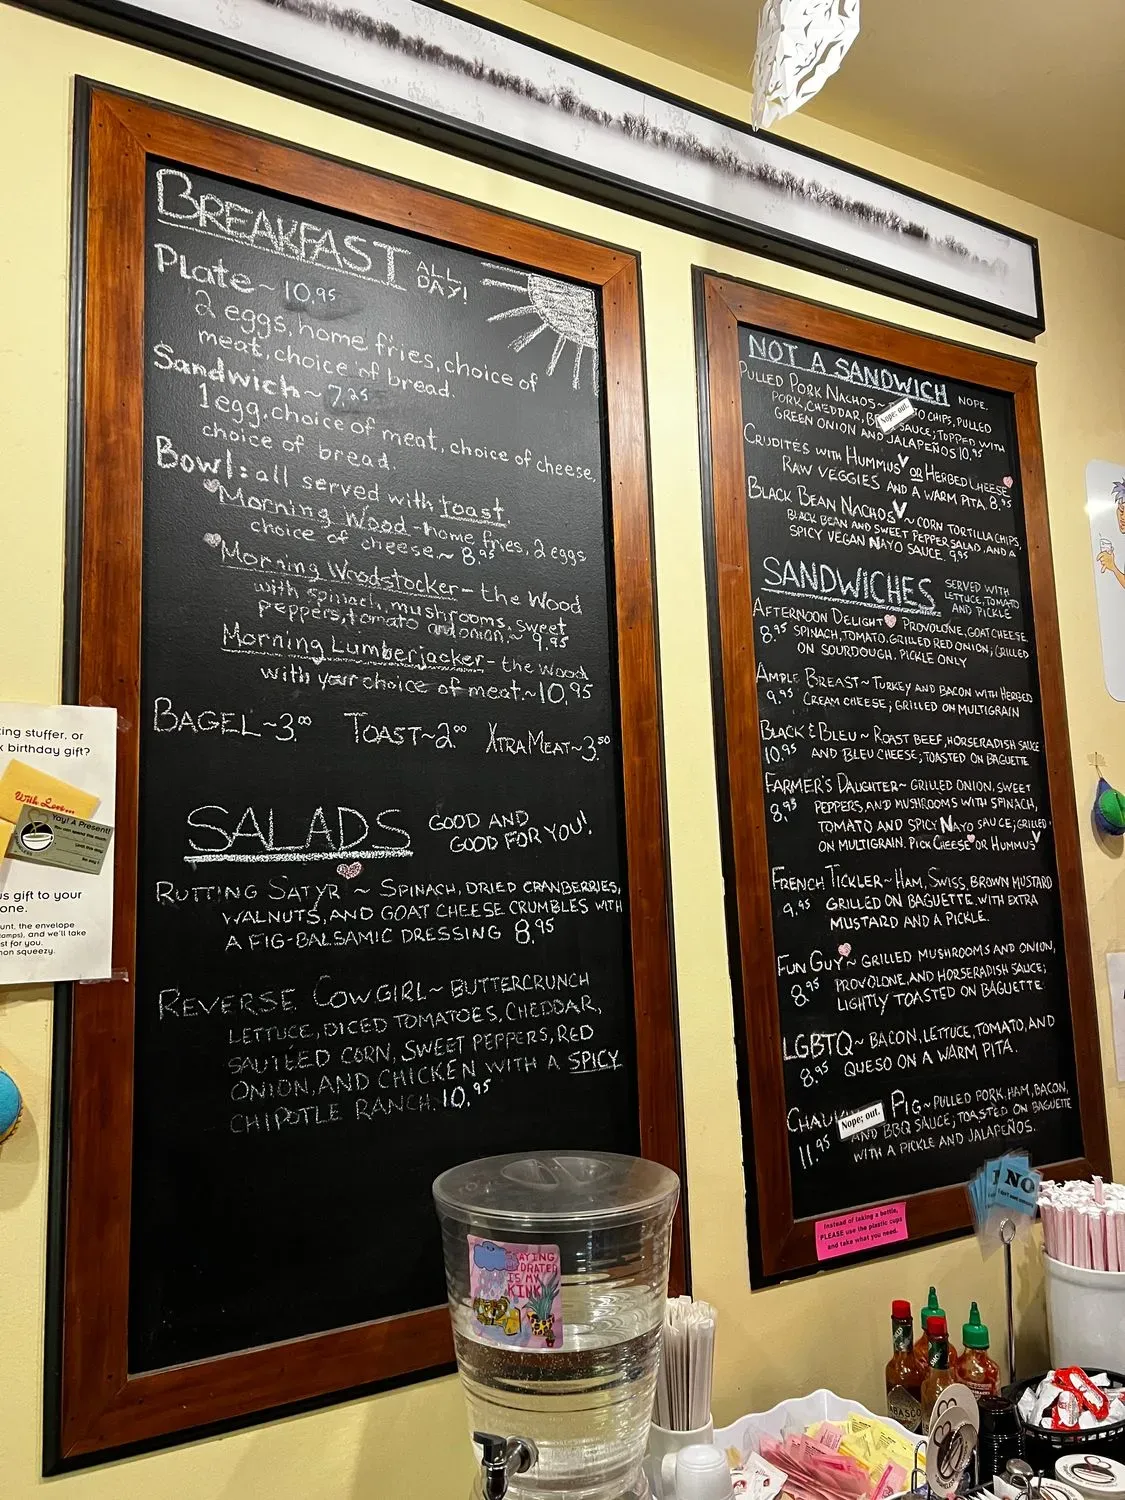 BREAKFAST ALL DAY!
Plate~10.95
2 eggs, home fries, choice of
meat, choice of bread.
Sandwich~7.25
1 egg, choice of meat, choice of cheese,
choice of bread.
Bowl: all served with toast.
Morning Wood-home fries, 2 eggs
choice of cheese.~8.95
Morning Woodstocker-the Wood
with spinach, mushrooms, sweet
peppers, tomato and onion.~9.95
Morning Lumberjacker-the Wood
with your choice of meat.~10.95
BAGEL~3.00 TOAST~2.00 XTRA MEAT~3.50
SALADS GOOD AND
GOOD FOR YOU!
RUTTING SATYR ~ SPINACH, DRIED CRANBERRIES,
WALNUTS, AND GOAT CHEESE CRUMBLES WITH
A FIG-BALSAMIC DRESSING 8.95
REVERSE COWGIRL~BUTTERCRUNCH
LETTUCE, DICED TOMATOES, CHEDDAR,
SAUTÉED CORN, SWEET PEPPERS, RED
ONION, AND CHICKEN WITH A SPICY
CHIPOTLE RANCH. 10.95
NOT A SANDWICH NOPE.
PULLED PORK NACHOS~ TO CHIPS, PULLED
PORK, CHEDDAR, SAUCE; TOPPED WITH
Nope; out.
GREEN ONION AND JALAPEÑOS 10.95
CRUDITÉS WITH HUMMUS V OR HERBED CHEESE
RAW VEGGIES AND A WARM PITA. 8.95
BLACK BEAN NACHOS V~CORN TORTILLA CHIPS,
BLACK BEAN AND SWEET PEPPER SALAD, AND A
SPICY VEGAN NAYO SAUCE. 9.95
SANDWICHES SERVED WITH
LETTUCE, TOMATO
AND PICKLE
AFTERNOON DELIGHT PROVOLONE, GOAT CHEESE,
8.95 SPINACH, TOMATO, GRILLED RED ONION; GRILLED
ON SOURDOUGH. PICKLE ONLY
AMPLE BREAST~TURKEY AND BACON WITH HERBED
9.95 CREAM CHEESE; GRILLED ON MULTIGRAIN
BLACK & BLEU~ROAST BEEF, HORSERADISH SAUCE
10.95 AND BLEU CHEESE; TOASTED ON BAGUETTE
FARMER'S DAUGHTER~GRILLED ONION, SWEET
8.95 PEPPERS, AND MUSHROOMS WITH SPINACH,
TOMATO AND SPICY NAYO SAUCE; GRILLED
ON MULTIGRAIN. PICK CHEESE OR HUMMUS V
FRENCH TICKLER~HAM, SWISS, BROWN MUSTARD
9.95 GRILLED ON BAGUETTE, WITH EXTRA
MUSTARD AND A PICKLE.
FUN GUY~GRILLED MUSHROOMS AND ONION,
8.95 PROVOLONE, AND HORSERADISH SAUCE;
LIGHTLY TOASTED ON BAGUETTE
LGBTQ~BACON, LETTUCE, TOMATO, AND
8.95 QUESO ON A WARM PITA.
PIG~PULLED PORK, HAM, BACON,
Nope; out.
11.95 AND BBQ SAUCE; TOASTED ON BAGUETTE
WITH A PICKLE AND JALAPEÑOS.
ing stuffer, or
birthday gift?
With Love...
Yay! A Present!
us gift to your
one.
unt, the envelope
amps), and we'll take
st for you.
non squeezy.
Instead of taking a bottle,
PLEASE use the plastic cups
and take what you need.
NO
STAYING
HYDRATED
IS MY
KINK